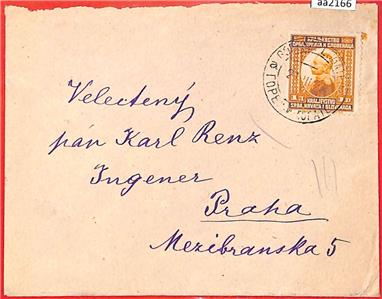 aa2166
КРАЉЕВСТВО
СРБА, ХРВАТА И СЛОВЕНАЦА
KRALJEVSTVO
SRBA, HRVATA I SLOVENACA
Velectený
pán Karl Renz
Ingener
Praha
Mezibranska 5